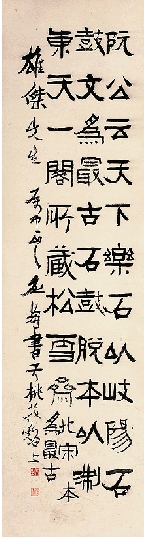 阮公云天下樂石以岐陽石
鼓文為最古石鼓脫本以浙
東天一閣所藏松雪齋北宋本
為最古
雄傑先生 属 書于桃花